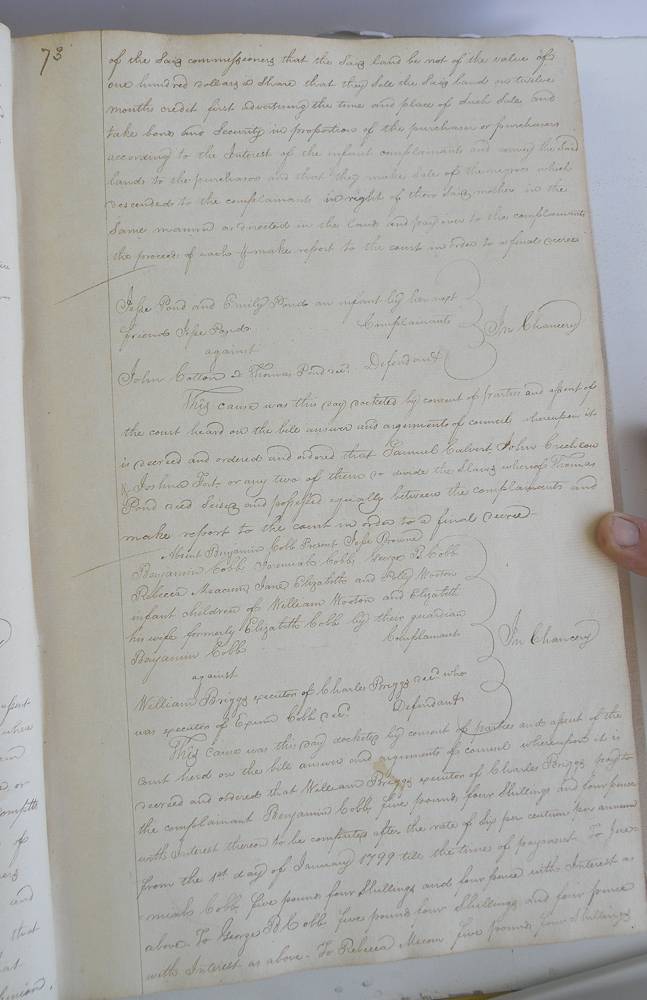 73
of the Said commissioners that the Said land be not of the value of
one hundred dollars a Share that they Sell the Said land on twelve
months credit first advertising the time and place of Such Sale and
take bond and Security in proportion of the purchaser or purchasers
according to the Interest of the infant complainants and convey the Said
lands to the purchasers and that they make Sale of the negroes which
descended to the complainants in right of there Said mother in the
Same manner as directed in the land and pay over to the complainants
the proceed of each & make report to the court in order to a final decree
Jesse Pond and Emily Pond an infant by her next
friend Jesse Pond Complainants
In Chancery
against
John Cotton & Thomas Pond decd. Defendant
This cause was this day docketed by consent of parties and assent of
the court heard on the bill answer and arguments of council whereupon it
is decreed and ordered and ordered that Samuel Calvert John Crichlow
& Joshua Fort or any two of them do divide the Slaves whereof Thomas
Pond died Seised and possessed equally between the complainants and
make report to the court in order to a final decree
Absent Benjamin Cobb Present Jesse Browne
Benjamin Cobb Jeremiah Cobb, George B Cobb
Rebecca Meacum, Jane, Elizabeth and Polly Weston
infant children of William Weston and Elizabeth
his wife formerly Elizabeth Cobb by their guardian
Benjamin Cobb Complainants
In Chancery
against
William Briggs executor of Charles Briggs decd. who
was executor of Exum Cobb decd. Defendant
This cause was this day docketed by consent of parties and assent of the
court herd on the bill answer and arguments of council whereupon it is
decreed and ordered that William Briggs executor of Charles Briggs pay to
the complainant Benjamin Cobb five pound, four Shillings and four pence
with interest thereon to be computed after the rate of Six per centum per annum
from the 1st day of January 1799 till the times of payment. To Jere=
=miah Cobb five pound four Shillings and four pence with Interest as
above. To George B Cobb five pounds four Shillings and four pence
with Interest as above. To Rebecca Meacum five pounds four Shillings